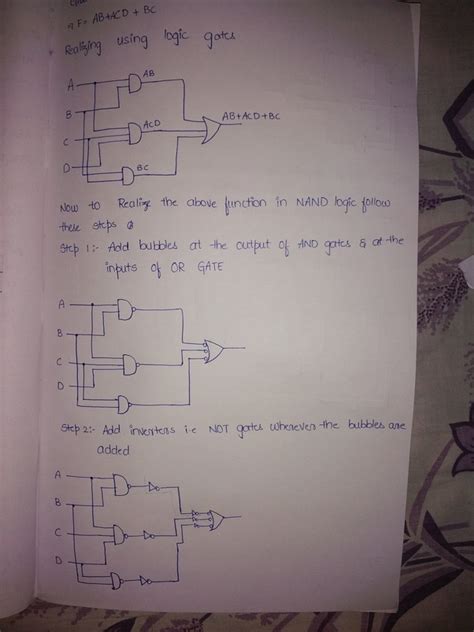 F= AB+ACD + BC
Realizing using logic gates
A
AB
B
C
ACD
AB+ACD+BC
D
BC
Now to Realize the above function in NAND logic follow
these steps
Step 1:- Add bubbles at the output of AND gates & at the
inputs of OR GATE
A
B
C
D
Step 2:- Add inverters i.e NOT gates wherever the bubbles are
added
A
B
C
D